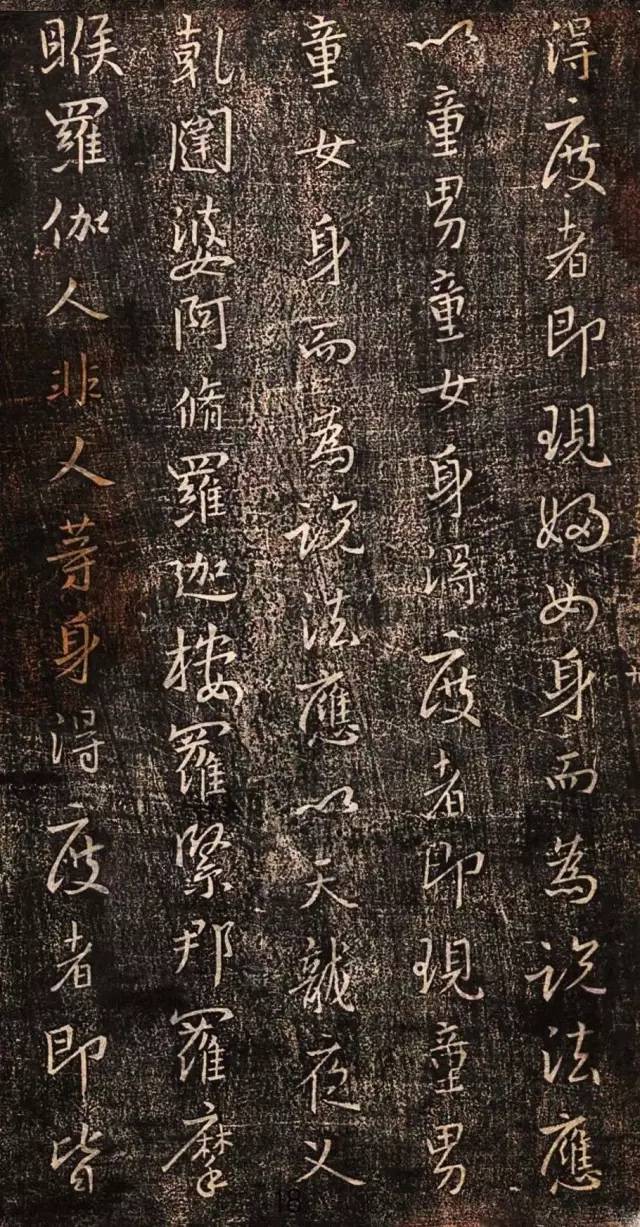 得度者即現婦女身而為説法應
以童男童女身得度者即現童男
童女身而為説法應以天龍夜叉
乾闥婆阿脩羅迦樓羅緊那羅摩
睺羅伽人非人等身得度者即皆
18